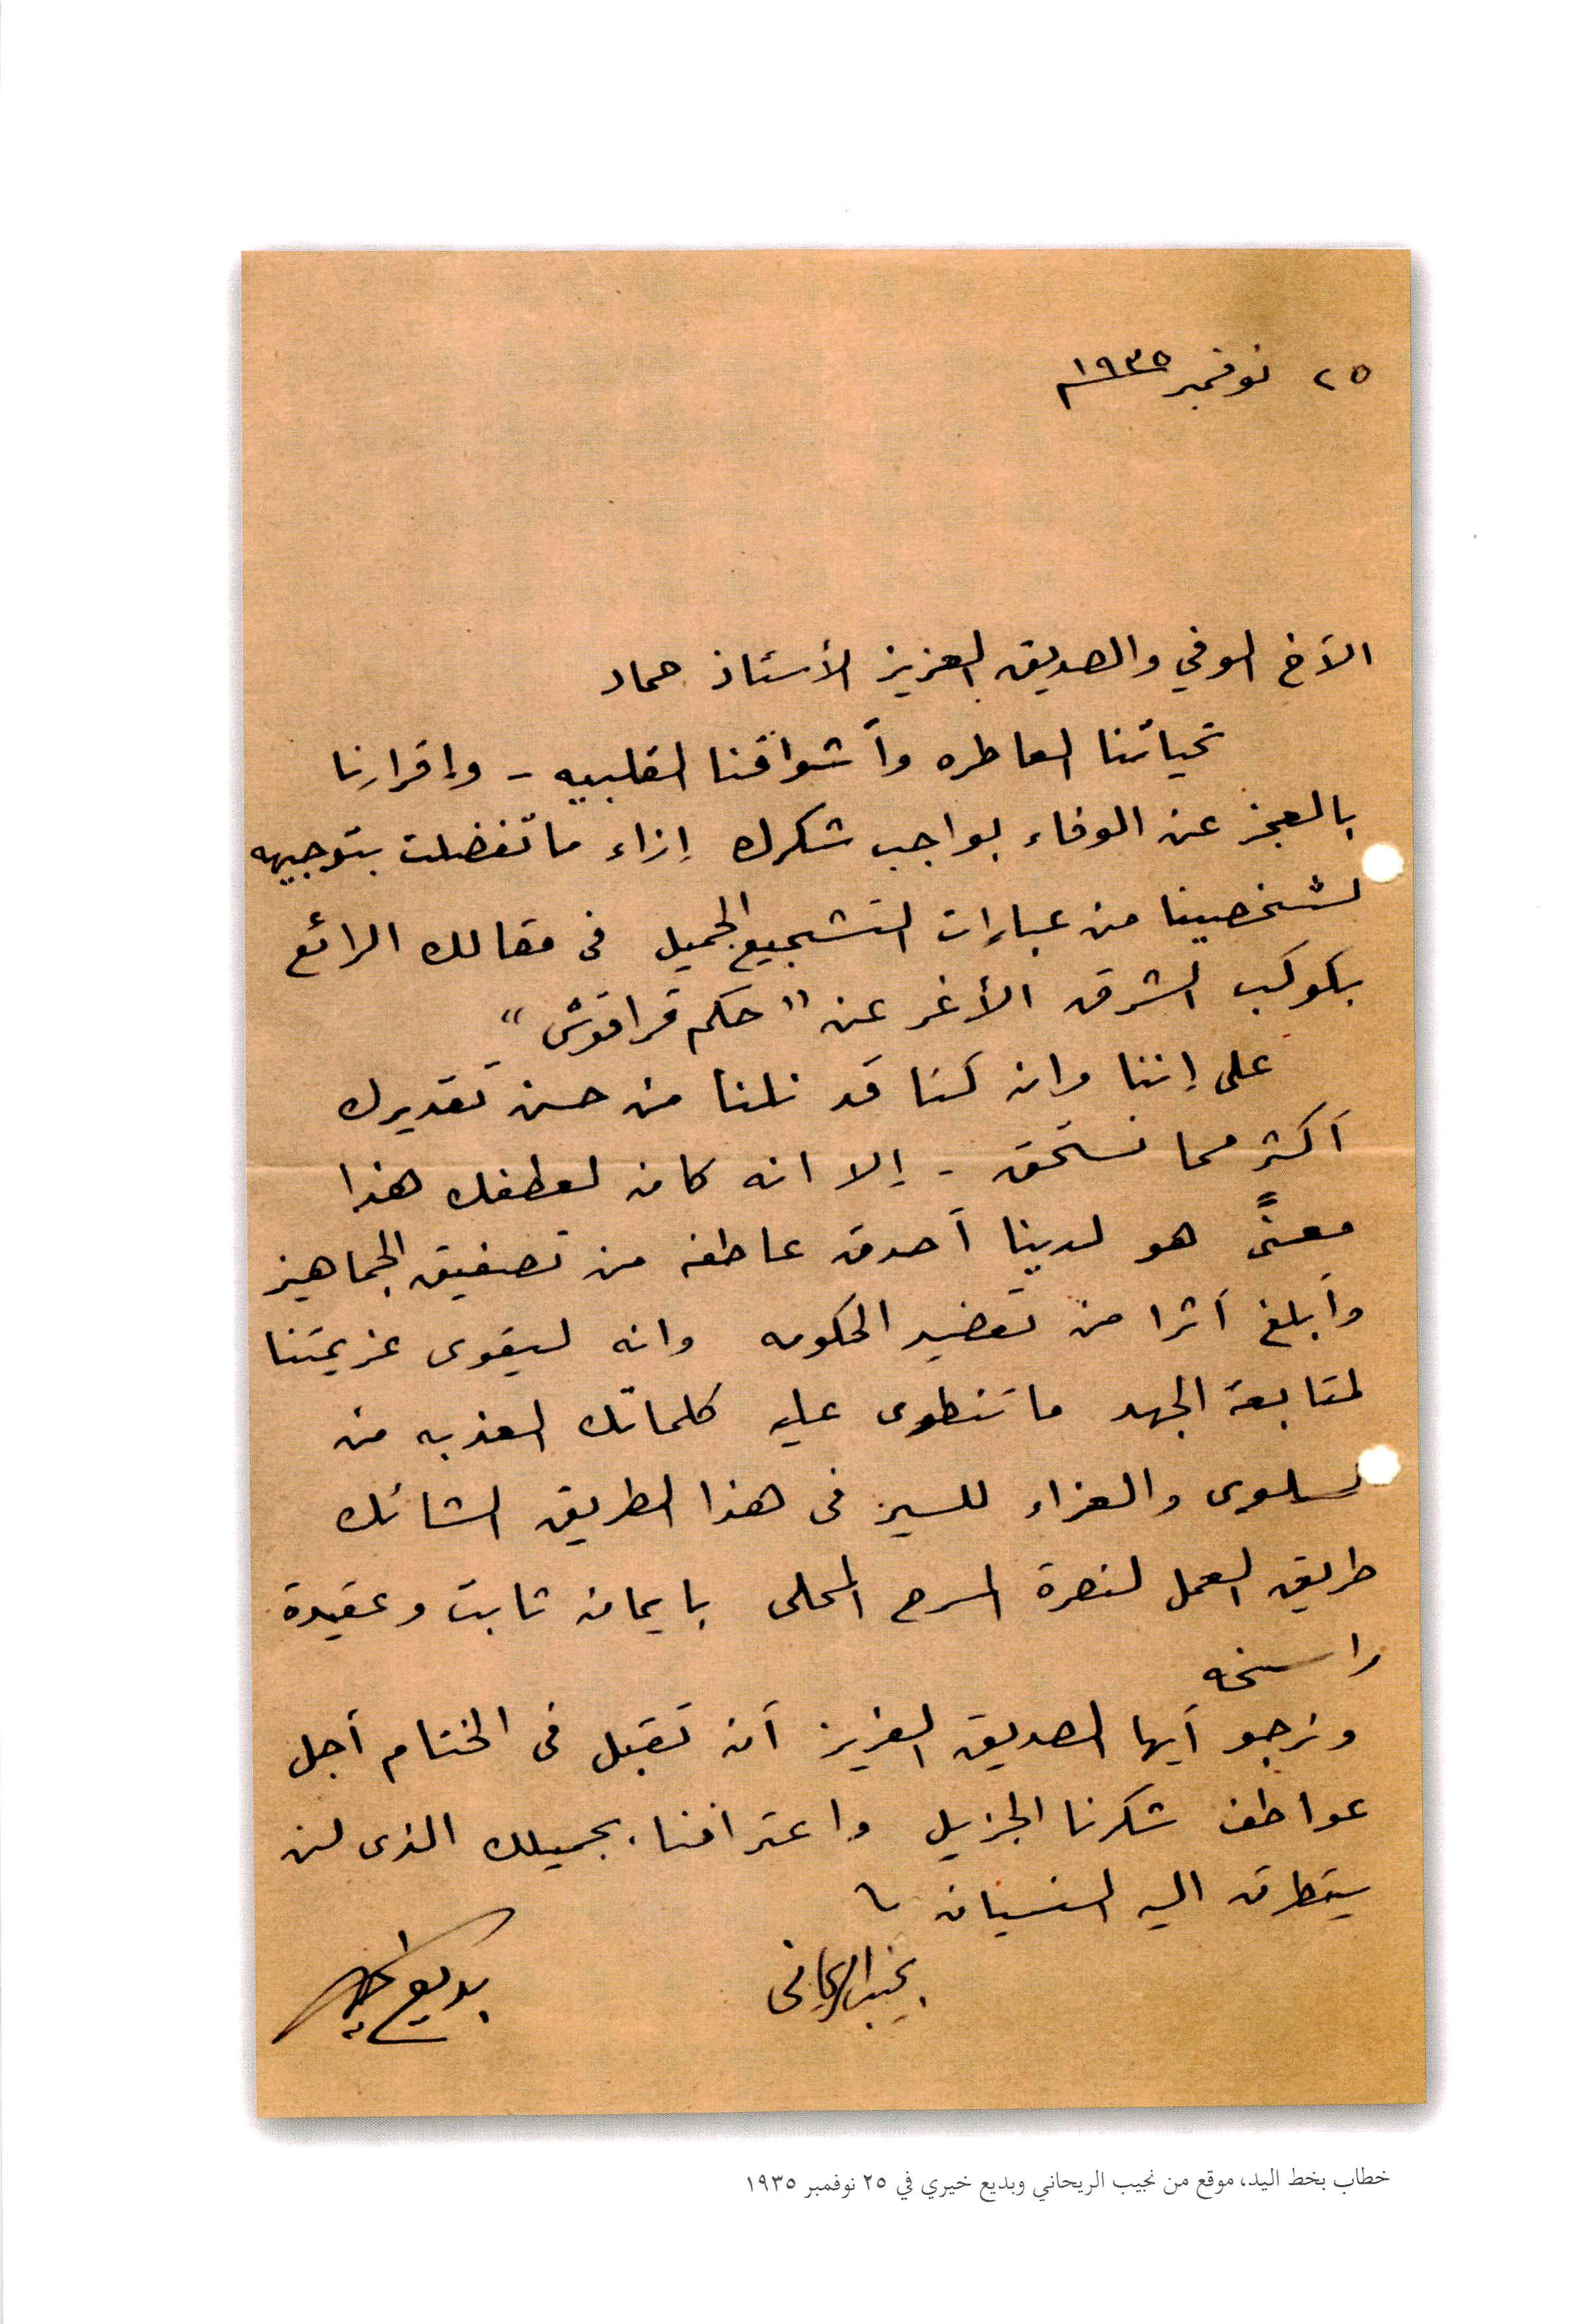 ٢٥ نوفمبر ١٩٣٥م
الأخ الوفي والصديق العزيز الأستاذ حماد
تحياتنا العاطره وأشواقنا القلبيه - وإقرارنا
بالعجز عن الوفاء بواجب شكرك إزاء ما تفضلت بتوجيهه
لشخصينا من عبارات التشجيع الجميل فى مقالك الرائع
بكوكب الشرق الأغر عن "حكم قراقوش"
على إننا وان كنا قد نلنا من حسن تقديرك
أكثر مما نستحق - إلا انه كان لعطفك هذا
معنىً هو لدينا أصدق عاطفه من تصفيق الجماهير
وأبلغ أثرا من تعضيد الحكومه وانه ليقوى عزيمتنا
لمتابعة الجهد ما تنطوى عليه كلماتك العذبه من
السلوى والعزاء للسير فى هذا الطريق الشائك
طريق العمل لنصرة المسرح المحلى بايمان ثابت وعقيدة
راسخه
ونرجو أيها الصديق العزيز أن تقبل فى الختام أجل
عواطف شكرنا الجزيل واعترافنا بجميلك الذى لن
يتطرق اليه النسيان
نجيب الريحانى
بديع خيرى
خطاب بخط اليد، موقع من نجيب الريحاني وبديع خيري في ٢٥ نوفمبر ١٩٣٥